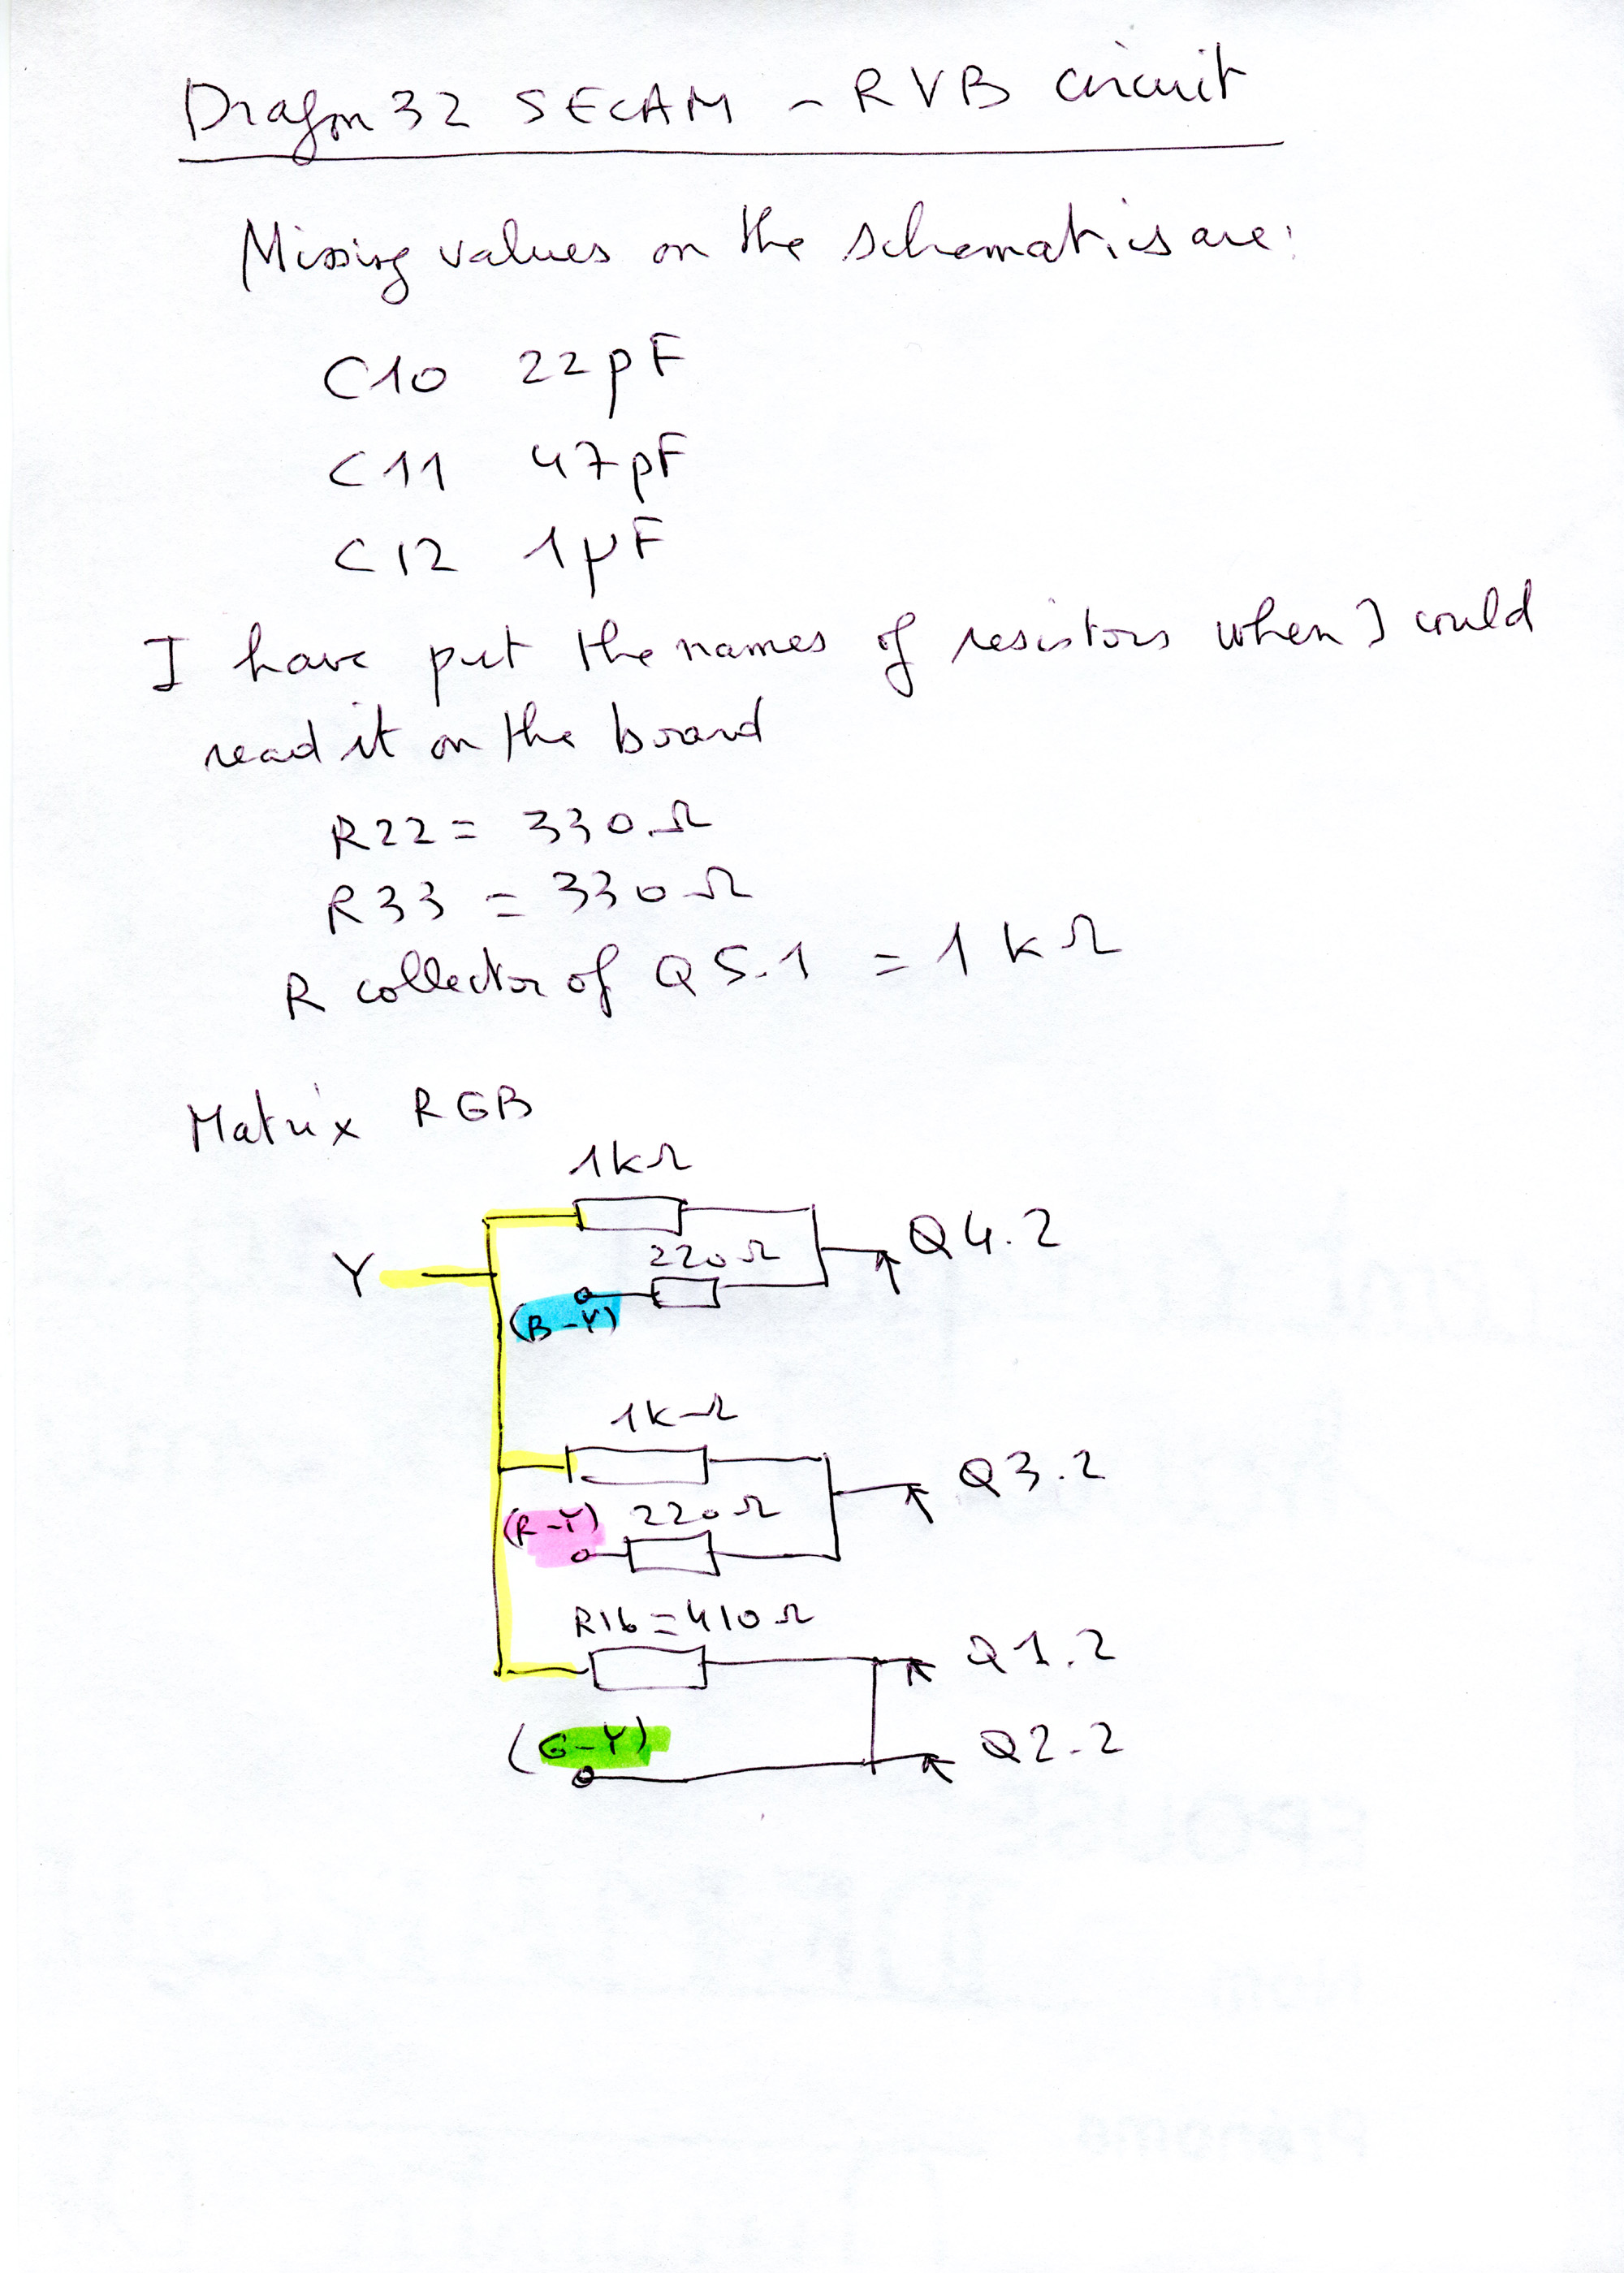 Dragon 32 SECAM - RVB circuit
Missing values on the schematics are:
C10 22pF
C11 47pF
C12 1µF
I have put the names of resistors when I could
read it on the board
R22 = 330Ω
R33 = 330Ω
R collector of Q5.1 = 1kΩ
Matrix RGB
1kΩ
Q4.2
220Ω
Y
(B-Y)
1kΩ
Q3.2
(R-Y) 220Ω
R16=410Ω
Q1.2
(G-Y)
Q2.2